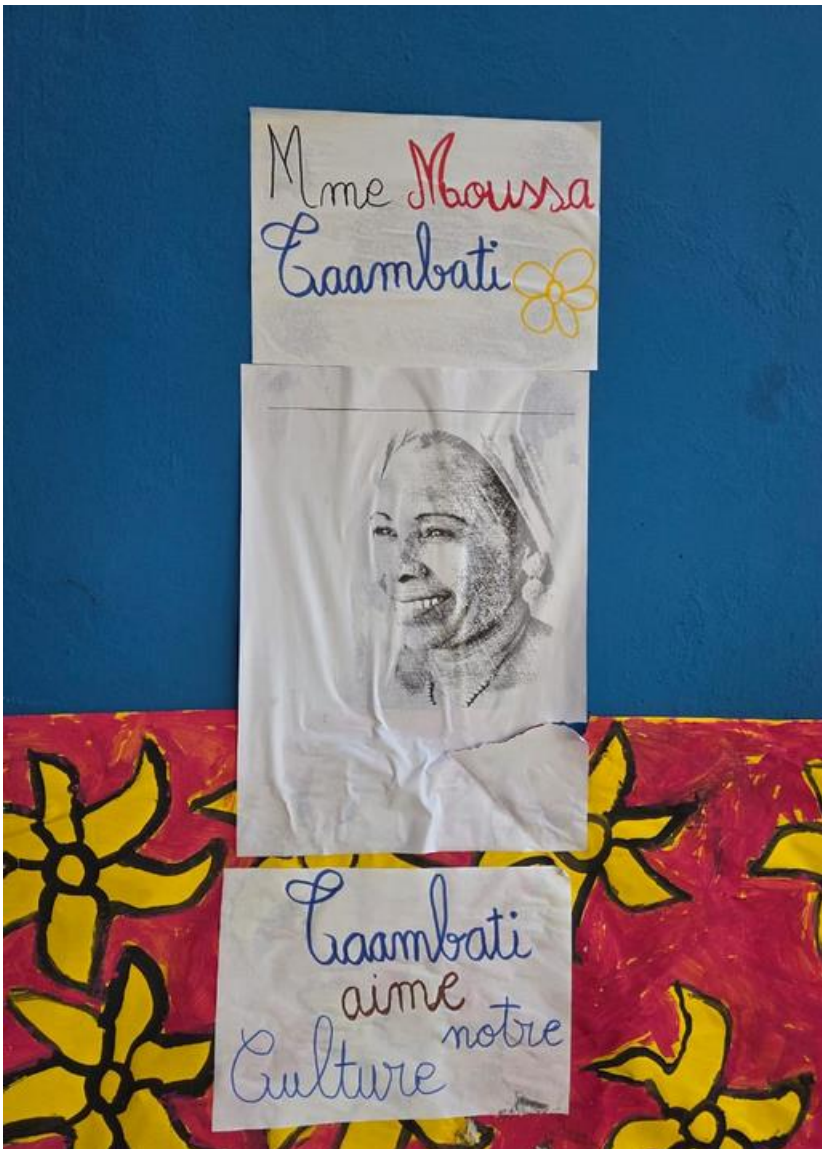 Mme Moussa
Taambati
Taambati
aime
notre
Culture